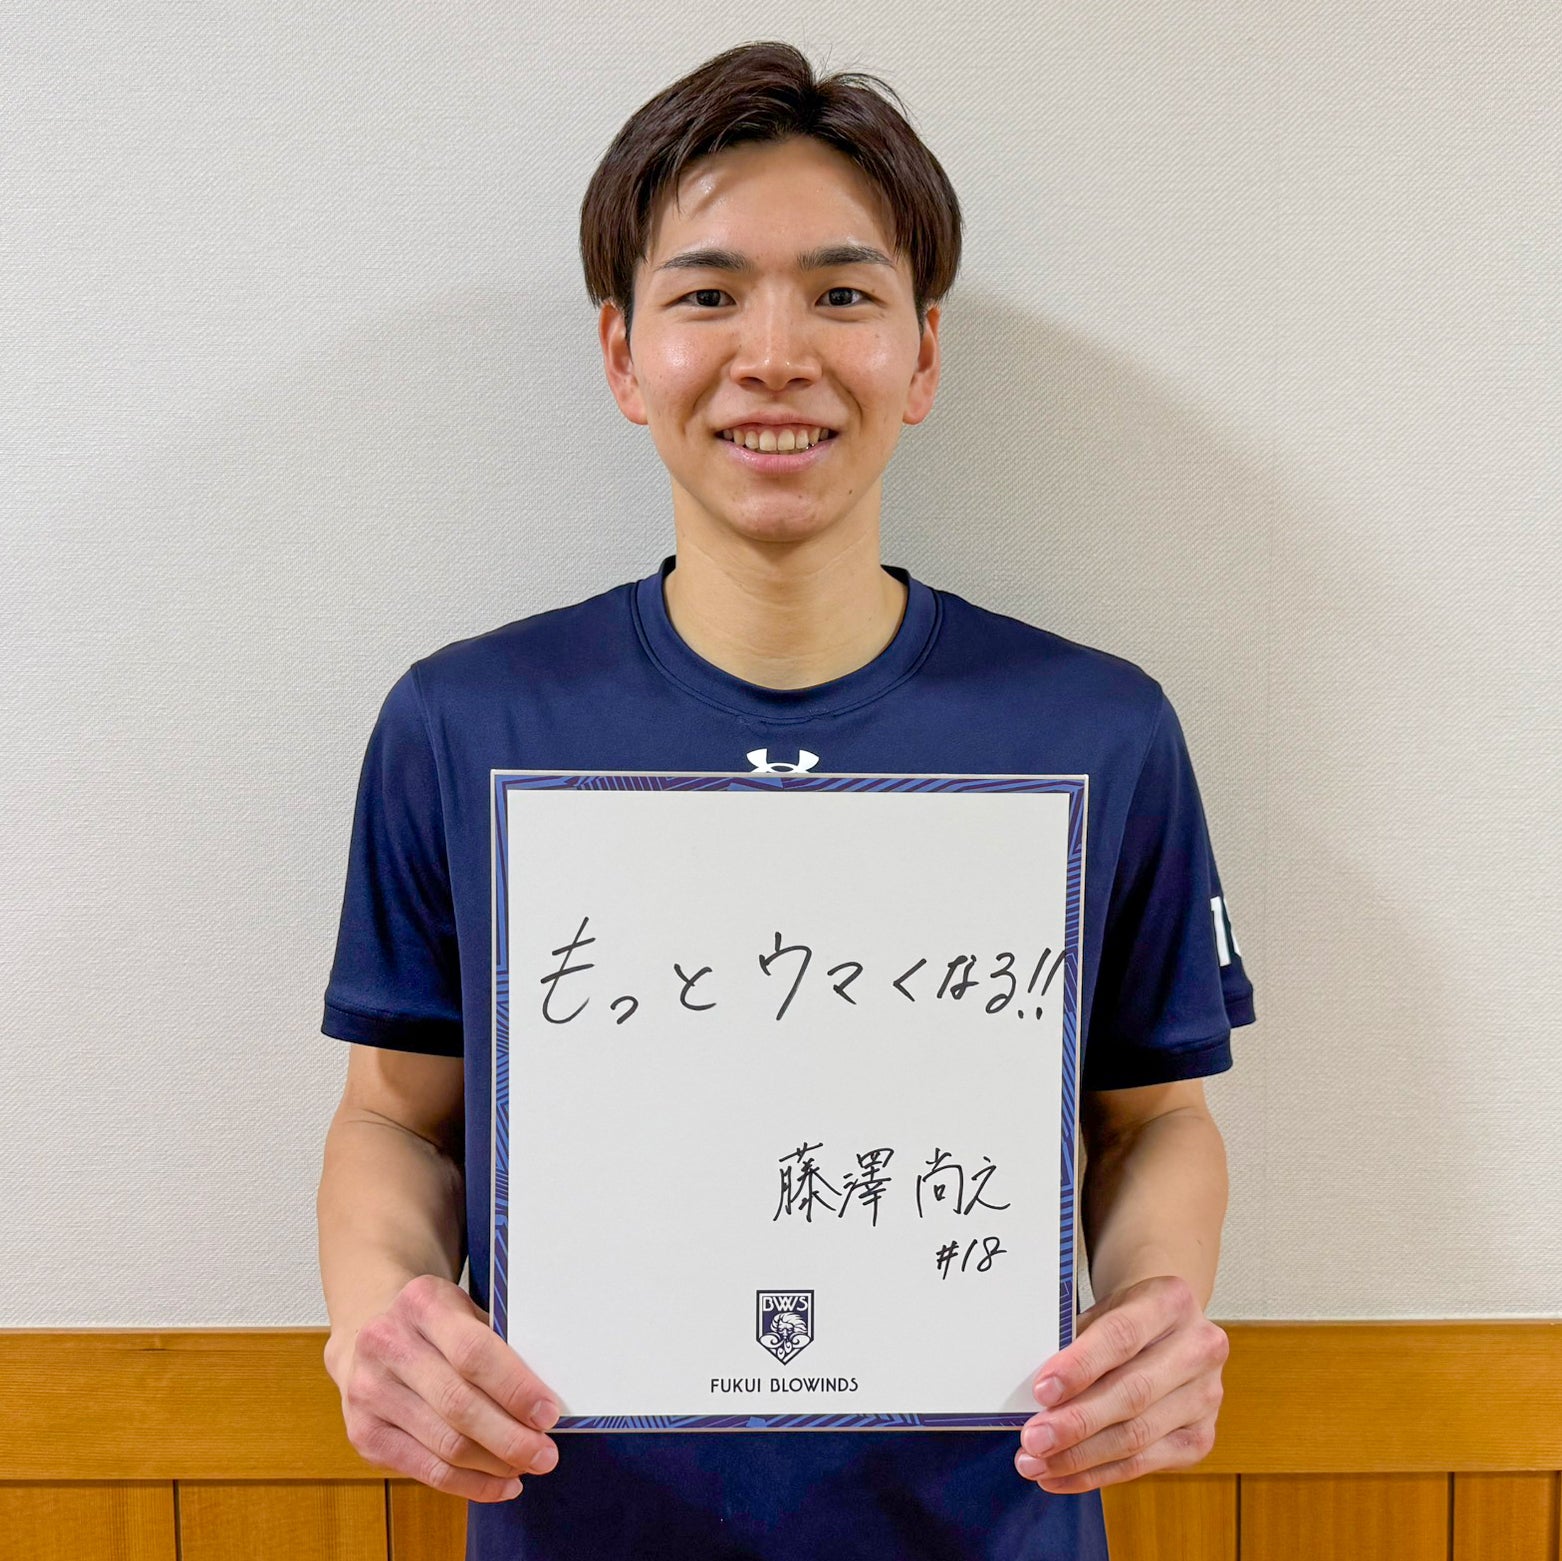 もっとウマくなる!!
藤澤 尚之
#18
BWS
FUKUI BLOWINDS